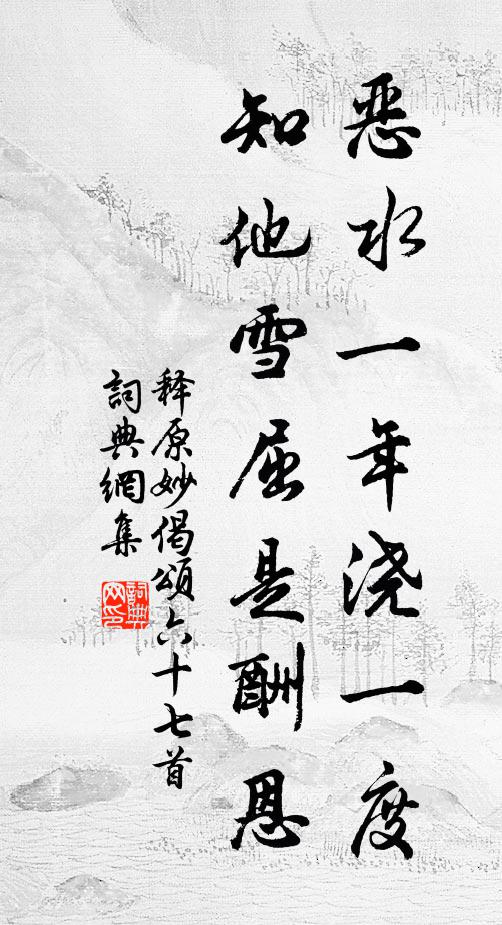 恶水一年浇一度
知他雪屈是酬恩
释原妙偈頌六十七首
詞典網集
詞典网印